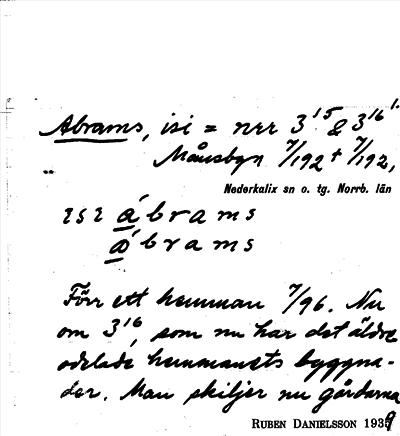 Abrams, isi = nrr 3¹⁵ & 3¹⁶ 1.
Månsbyn 7/192 + 7/192,
Nederkalix sn o. tg. Norrb. län
ábrams
ábrams
Förr ett hemman 7/96. Nu
om 3¹⁶, som nu har det äldre
odelade hemmanets byggna-
der. Man skiljer nu gårdarna
RUBEN DANIELSSON 1939